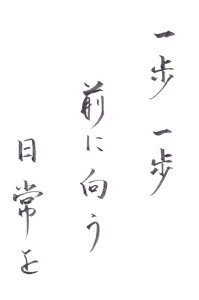 一歩一歩
前に向う
日常を